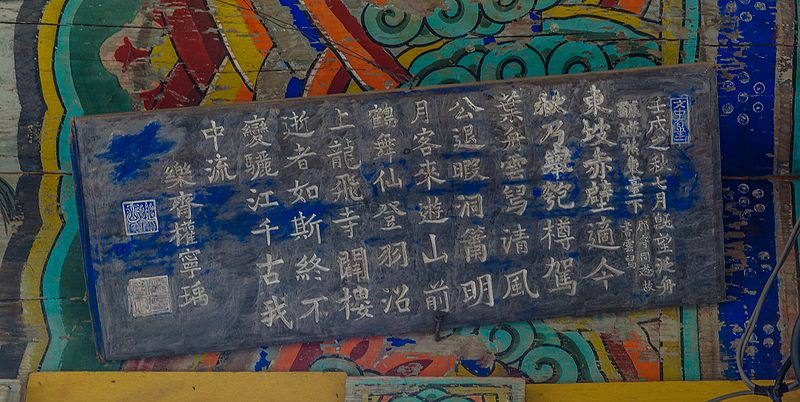 壬戌之秋七月旣望泛舟
東坡赤壁過今
秋乃擧匏樽駕
葉舟雲清風
公退暇洞簫明
月客來遊山前
鶴舞仙登羽沿
上龍飛寺闢樓
逝者如斯終不
變驪江千古我
中流
樂齋權寧瑀